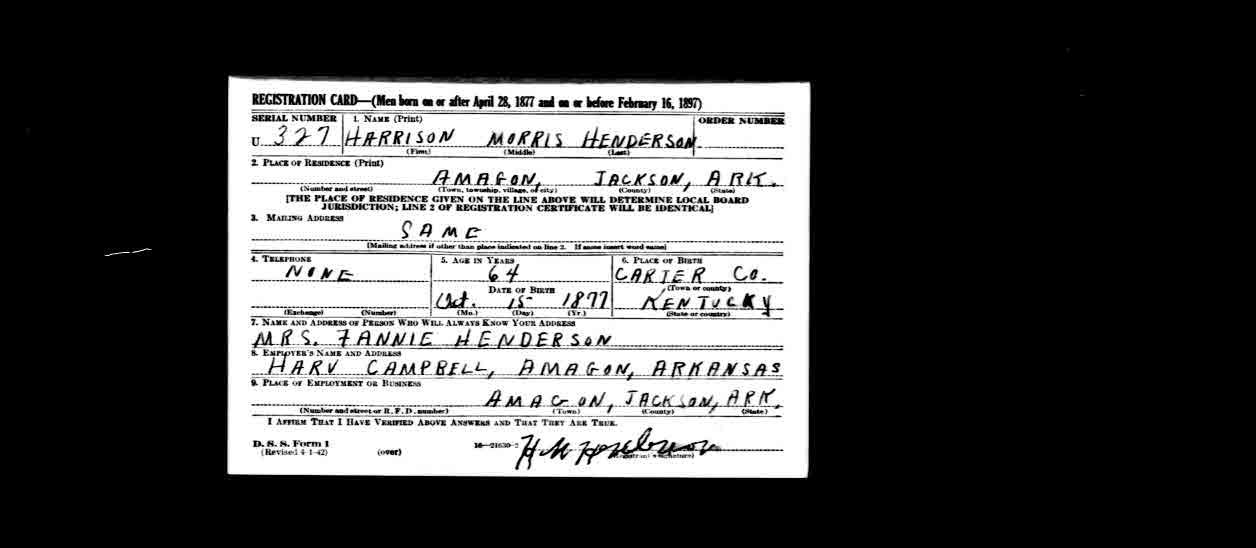 REGISTRATION CARD—(Men born on or after April 28, 1877 and on or before February 16, 1897)
SERIAL NUMBER 1. NAME (Print) ORDER NUMBER
U 327 HARRISON MORRIS HENDERSON
(First) (Middle) (Last)
2. PLACE OF RESIDENCE (Print)
AMAGON, JACKSON, ARK.
(Number and street) (Town, township, village, or city) (County) (State)
[THE PLACE OF RESIDENCE GIVEN ON THE LINE ABOVE WILL DETERMINE LOCAL BOARD
JURISDICTION; LINE 2 OF REGISTRATION CERTIFICATE WILL BE IDENTICAL]
3. MAILING ADDRESS
SAME
[Mailing address if other than place indicated on line 2. If same insert word same]
4. TELEPHONE 5. AGE IN YEARS 6. PLACE OF BIRTH
NONE 64 CARTER CO.
DATE OF BIRTH (Town or county)
Oct. 15 1877 KENTUCKY
(Exchange) (Number) (Mo.) (Day) (Yr.) (State or country)
7. NAME AND ADDRESS OF PERSON WHO WILL ALWAYS KNOW YOUR ADDRESS
MRS. FANNIE HENDERSON
8. EMPLOYER'S NAME AND ADDRESS
HARV CAMPBELL, AMAGON, ARKANSAS
9. PLACE OF EMPLOYMENT OR BUSINESS
AMAGON, JACKSON, ARK.
(Number and street or R. F. D. number) (Town) (County) (State)
I AFFIRM THAT I HAVE VERIFIED ABOVE ANSWERS AND THAT THEY ARE TRUE.
D. S. S. Form 1 16—21630-2 H M Henderson
(Revised 4-1-42) (over) (Registrant's signature)